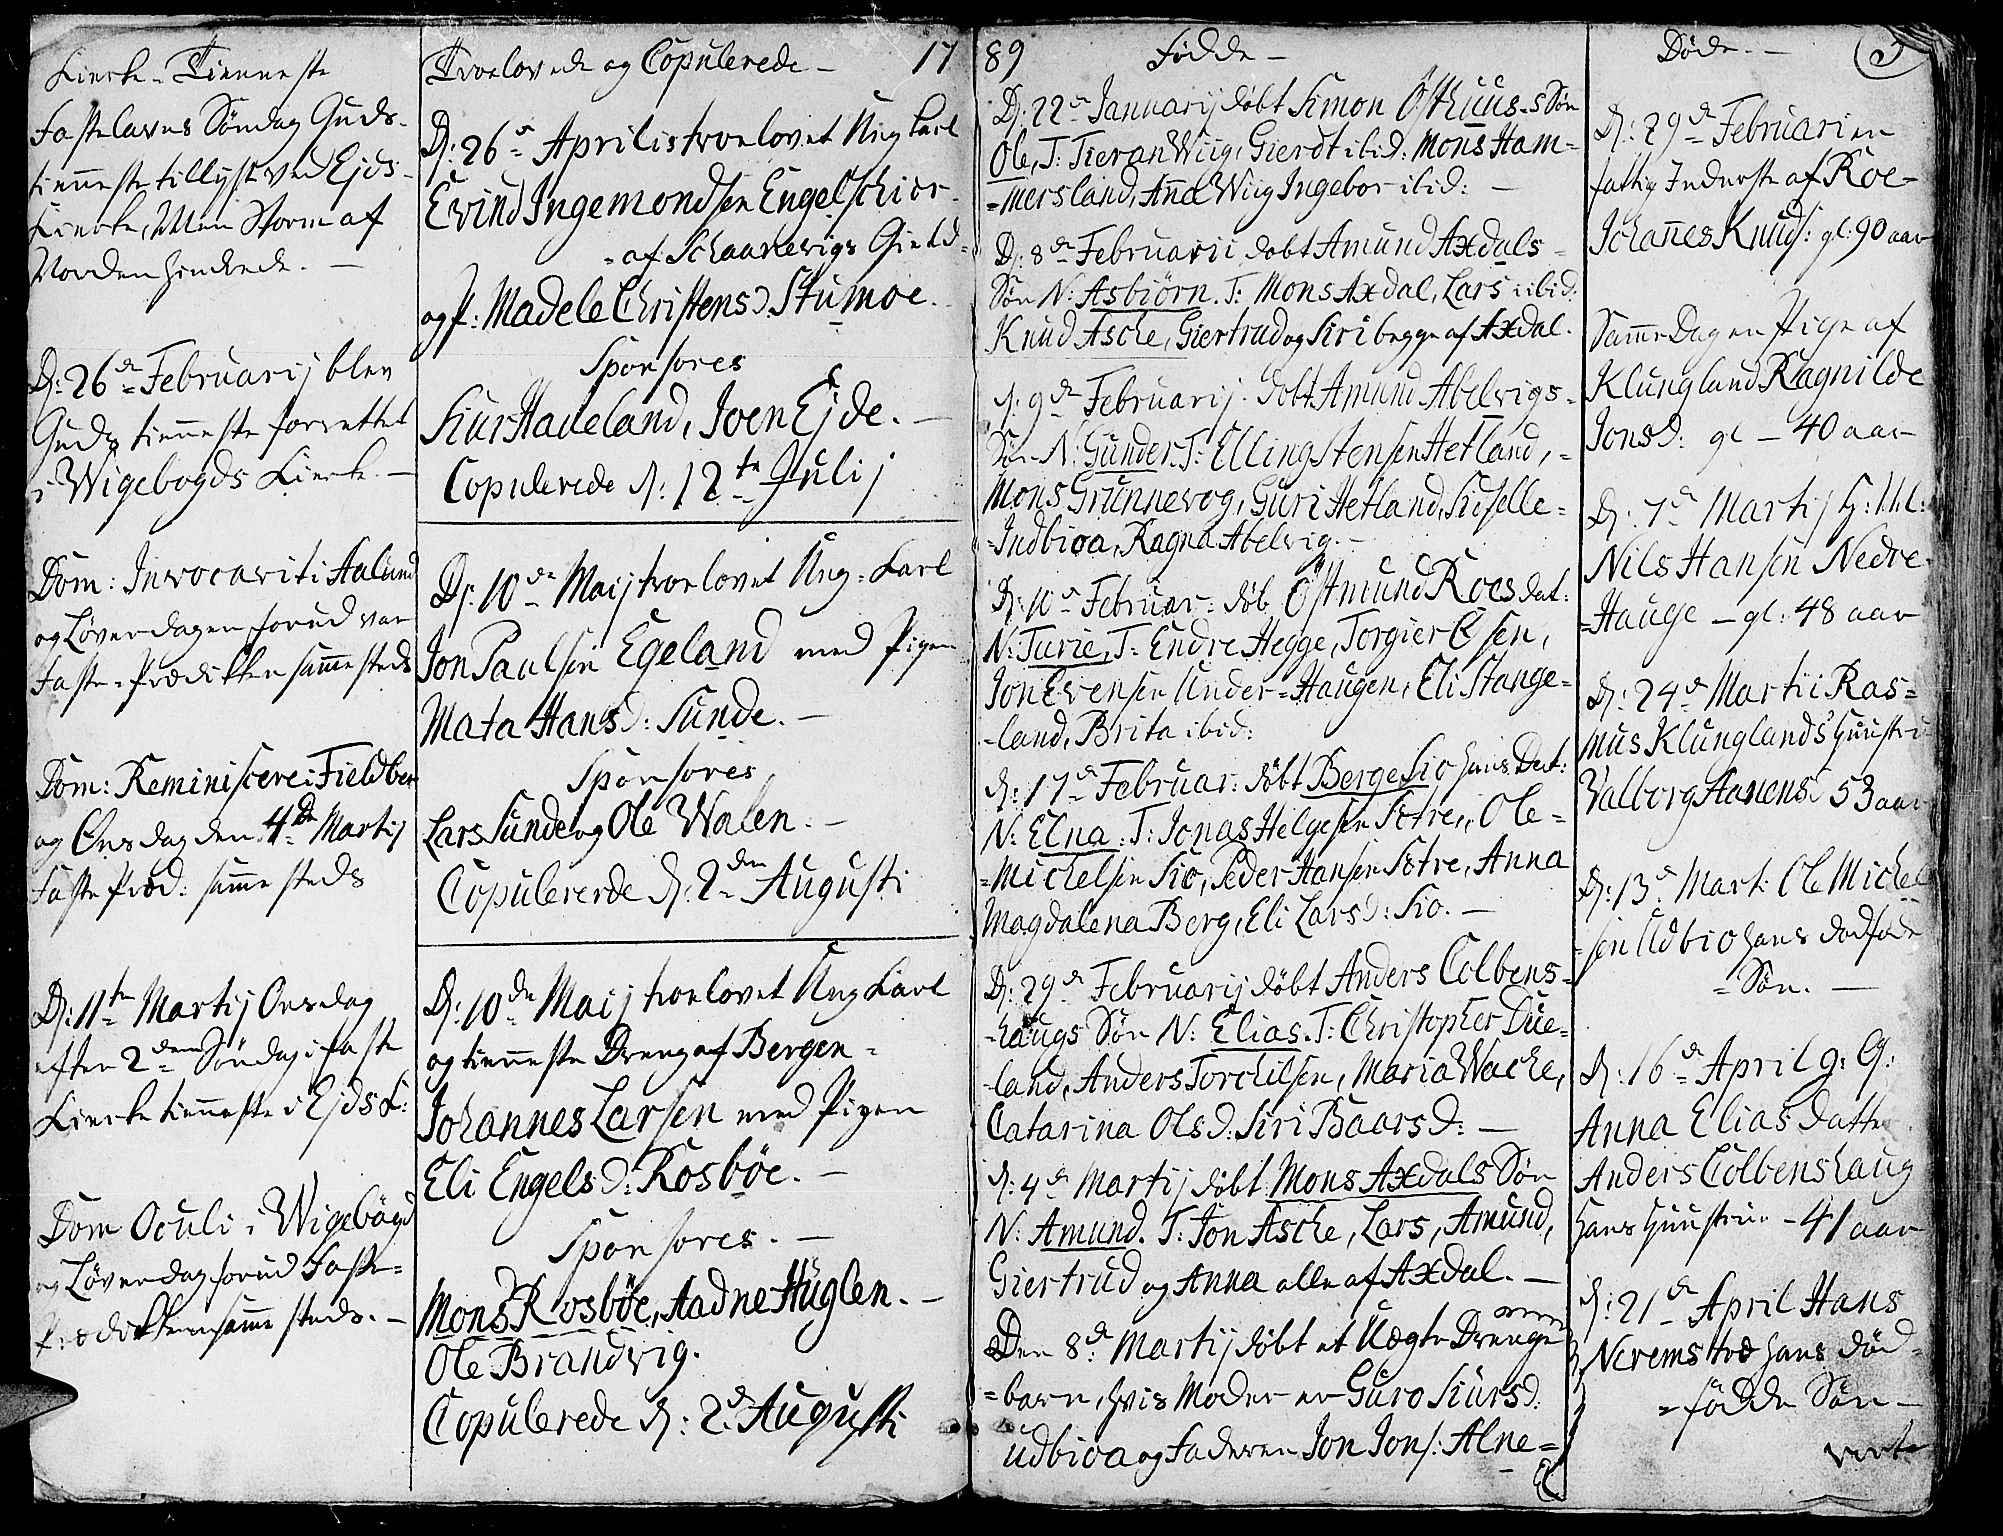 Kierke-Tienneste
Fastelavns Söndag Guds-
tienneste tillyst ved Ejds-
Kierke, Men Storm af
Norden hindrede. —
D: 26de Februarij blev
Guds tienneste forrettet
i Wigebogds Kierke. —
Dom: Invocavit i Aalund
og Løverdagen forud var
Faste-Prædikken samme steds
Dom: Reminiscere i Fieldber
og Onsdag den 4de Martij
Faste Præd: samme steds
D: 11te Martij Onsdag
efter 2den Söndag i faste
Kierke tienneste i Ejds K:
Dom Oculi i Wigebögd
og Løverdag forud Faste-
Prædikken samme steds. —
Troelovede og Copulerede — 17
D: 26de Aprilis troelovet Ung Karl
Evind Ingemondsen Engelschiør-
- af Schaanevigs Gield-
og P: Madele Christensd. Stumoe.
Sponsores
Siur Hadeland, Joen Ejde. —
Copulerede d: 12te Julij
D: 10de Maij troelovet Ung-Karl
Jon Paulsen Egeland med Pigen
Mata Hansd: Sunde. —
Sponsores
Lars Sunde og Ole Walen. —
Copulererde d: 2den Augusti
D: 10de Maij troelovet Ung Karl
og tienneste Dreng af Bergen-
Johannes Larsen med Pigen
Eli Engelsd: Rosbøe. —
Sponsores. —
Mons Rosbøe, Aadne Huglen. —
Ole Brandvig.
Copulerede d: 2de Augusti
89 Födde —
D: 22de Januarij döbt Simon Østhuus-s Søn
Ole, T: Wiig, Gierdt ibid: Mons Ham-
-mersland, Anna Wiig Ingebor ibid: —
D: 8de Februarii döbt Amund Axdals-
Søn N: Asbiörn. T: Mons Axdal, Lars ibid:
Knud Asche, Giertrud og Siri begge af Axdal.
d: 9de Februarij döbt Amund Abelvigs-
Søn N: Gunder. T: Elling Stensen Hetland, -
Mons Grunnevog, Guri Hetland, Sidselle-
-Indbioa, Ragna Abelvig. —
D: 10de Februar: döb Østmund Roes dat:
N: Turie, T: Endre Hegge, Torgier Olsen,
Jon Evensen Under-Haugen, Eli Stange-
-land, Brita ibid:
d: 17de Februar: döbt Berge Sio hans Dat:
N: Elna. T: Jonas Helgesen Sotre, Ole-
-Michelsen Sio, Peder Hansen Sotre, Anna
Magdalena Berg, Eli Larsd: Sio. —
D: 29de Februarij döbt Anders Colbens-
-haugs Søn N: Elias. T: Christopher Due-
-land, Anders Torchilsen, Maria Wache,
Catarina Olsd: Siri Baarsd: —
d: 4de Martij döbt Mons Axdals Søn
N: Amund. T: Jon Asche, Lars, Amund,
Giertrud og Anna alle af Axdal. —
Den 8de Martij döbt et Uægte Drenge
-barn, hvis Moder er Guro Siursd:
udbioa og Faderen Jon Jons: Alne-
Døde. — 5
D: 29de Februari en
fattig Inderste af Roe-
Johannes Knuds: gl: 90 aar
Samme Dag en Pige af
Klungland Ragnilde
Jonsd: gl — 40 aar
D: 7de Martij
Nils Hansen Nedre-
-Hauge — gl: 48 aar
D: 24de Martii Ras-
mus Klunglands Huustru
Valborg 53 aar
D: 13de Mart: Ole Michel
-sen Udbio hans dødfødde
-Søn. —
D: 16de April
Anna Elias datter
Anders Colbenshaug
hans Huustrue — 41 aar
d: 21de April Hans
Nerems hans død-
-födde Søn —
vert